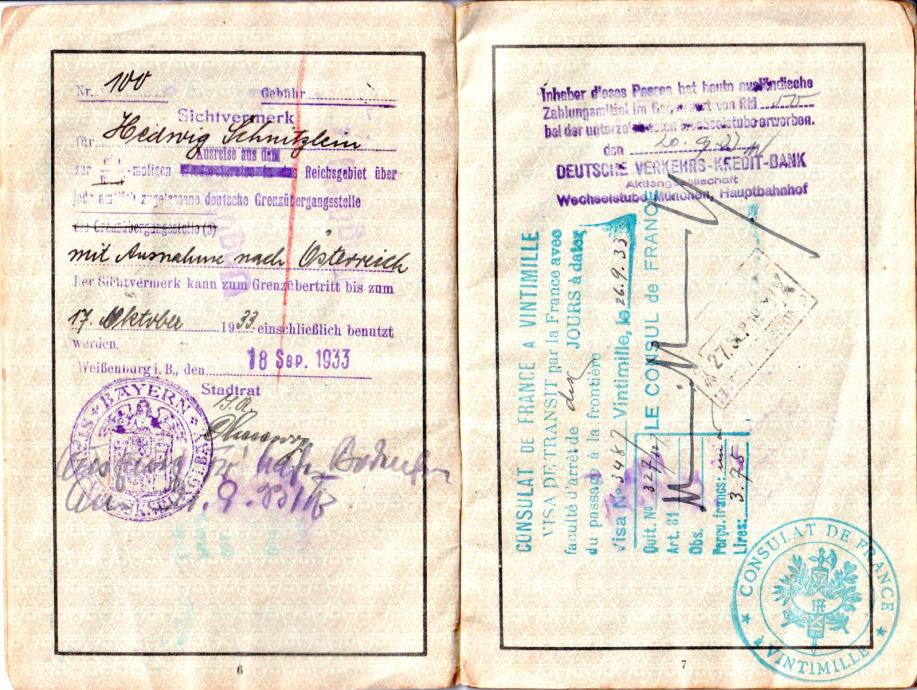 Nr. 100 Gebühr
Sichtvermerk
für Hedwig Schnitzlein
Ausreise aus dem
zur ein-maligen Reichsgebiet über
jede amtlich zugelassene deutsche Grenzübergangsstelle
die Grenzübergangsstelle(n)
mit Ausnahme nach Österreich
Der Sichtvermerk kann zum Grenzübertritt bis zum
17. Oktober 1933 einschließlich benutzt
werden.
Weißenburg i. B., den 18 Sep. 1933
Stadtrat
BAYERN
6
Inhaber dieses Passes hat heute ausländische
Zahlungsmittel im Gegenwert von RM 50
bei der unterzeichneten Wechselstube erworben.
den 20.9.33
DEUTSCHE VERKEHRS-KREDIT-BANK
Aktiengesellschaft
Wechselstube München, Hauptbahnhof
CONSULAT DE FRANCE A VINTIMILLE
VISA DE TRANSIT par la France avec
faculté d'arrêt de dix JOURS à dater
du passage à la frontière
Visa No 3487 Vintimille, le 26.9.33
LE CONSUL de FRANCE
Quit. No 327/
Art. 81
Obs.
Perçu. francs:
Lires: 3.75
27. SEP.
CONSULAT DE FRANCE
RF
A VINTIMILLE
7